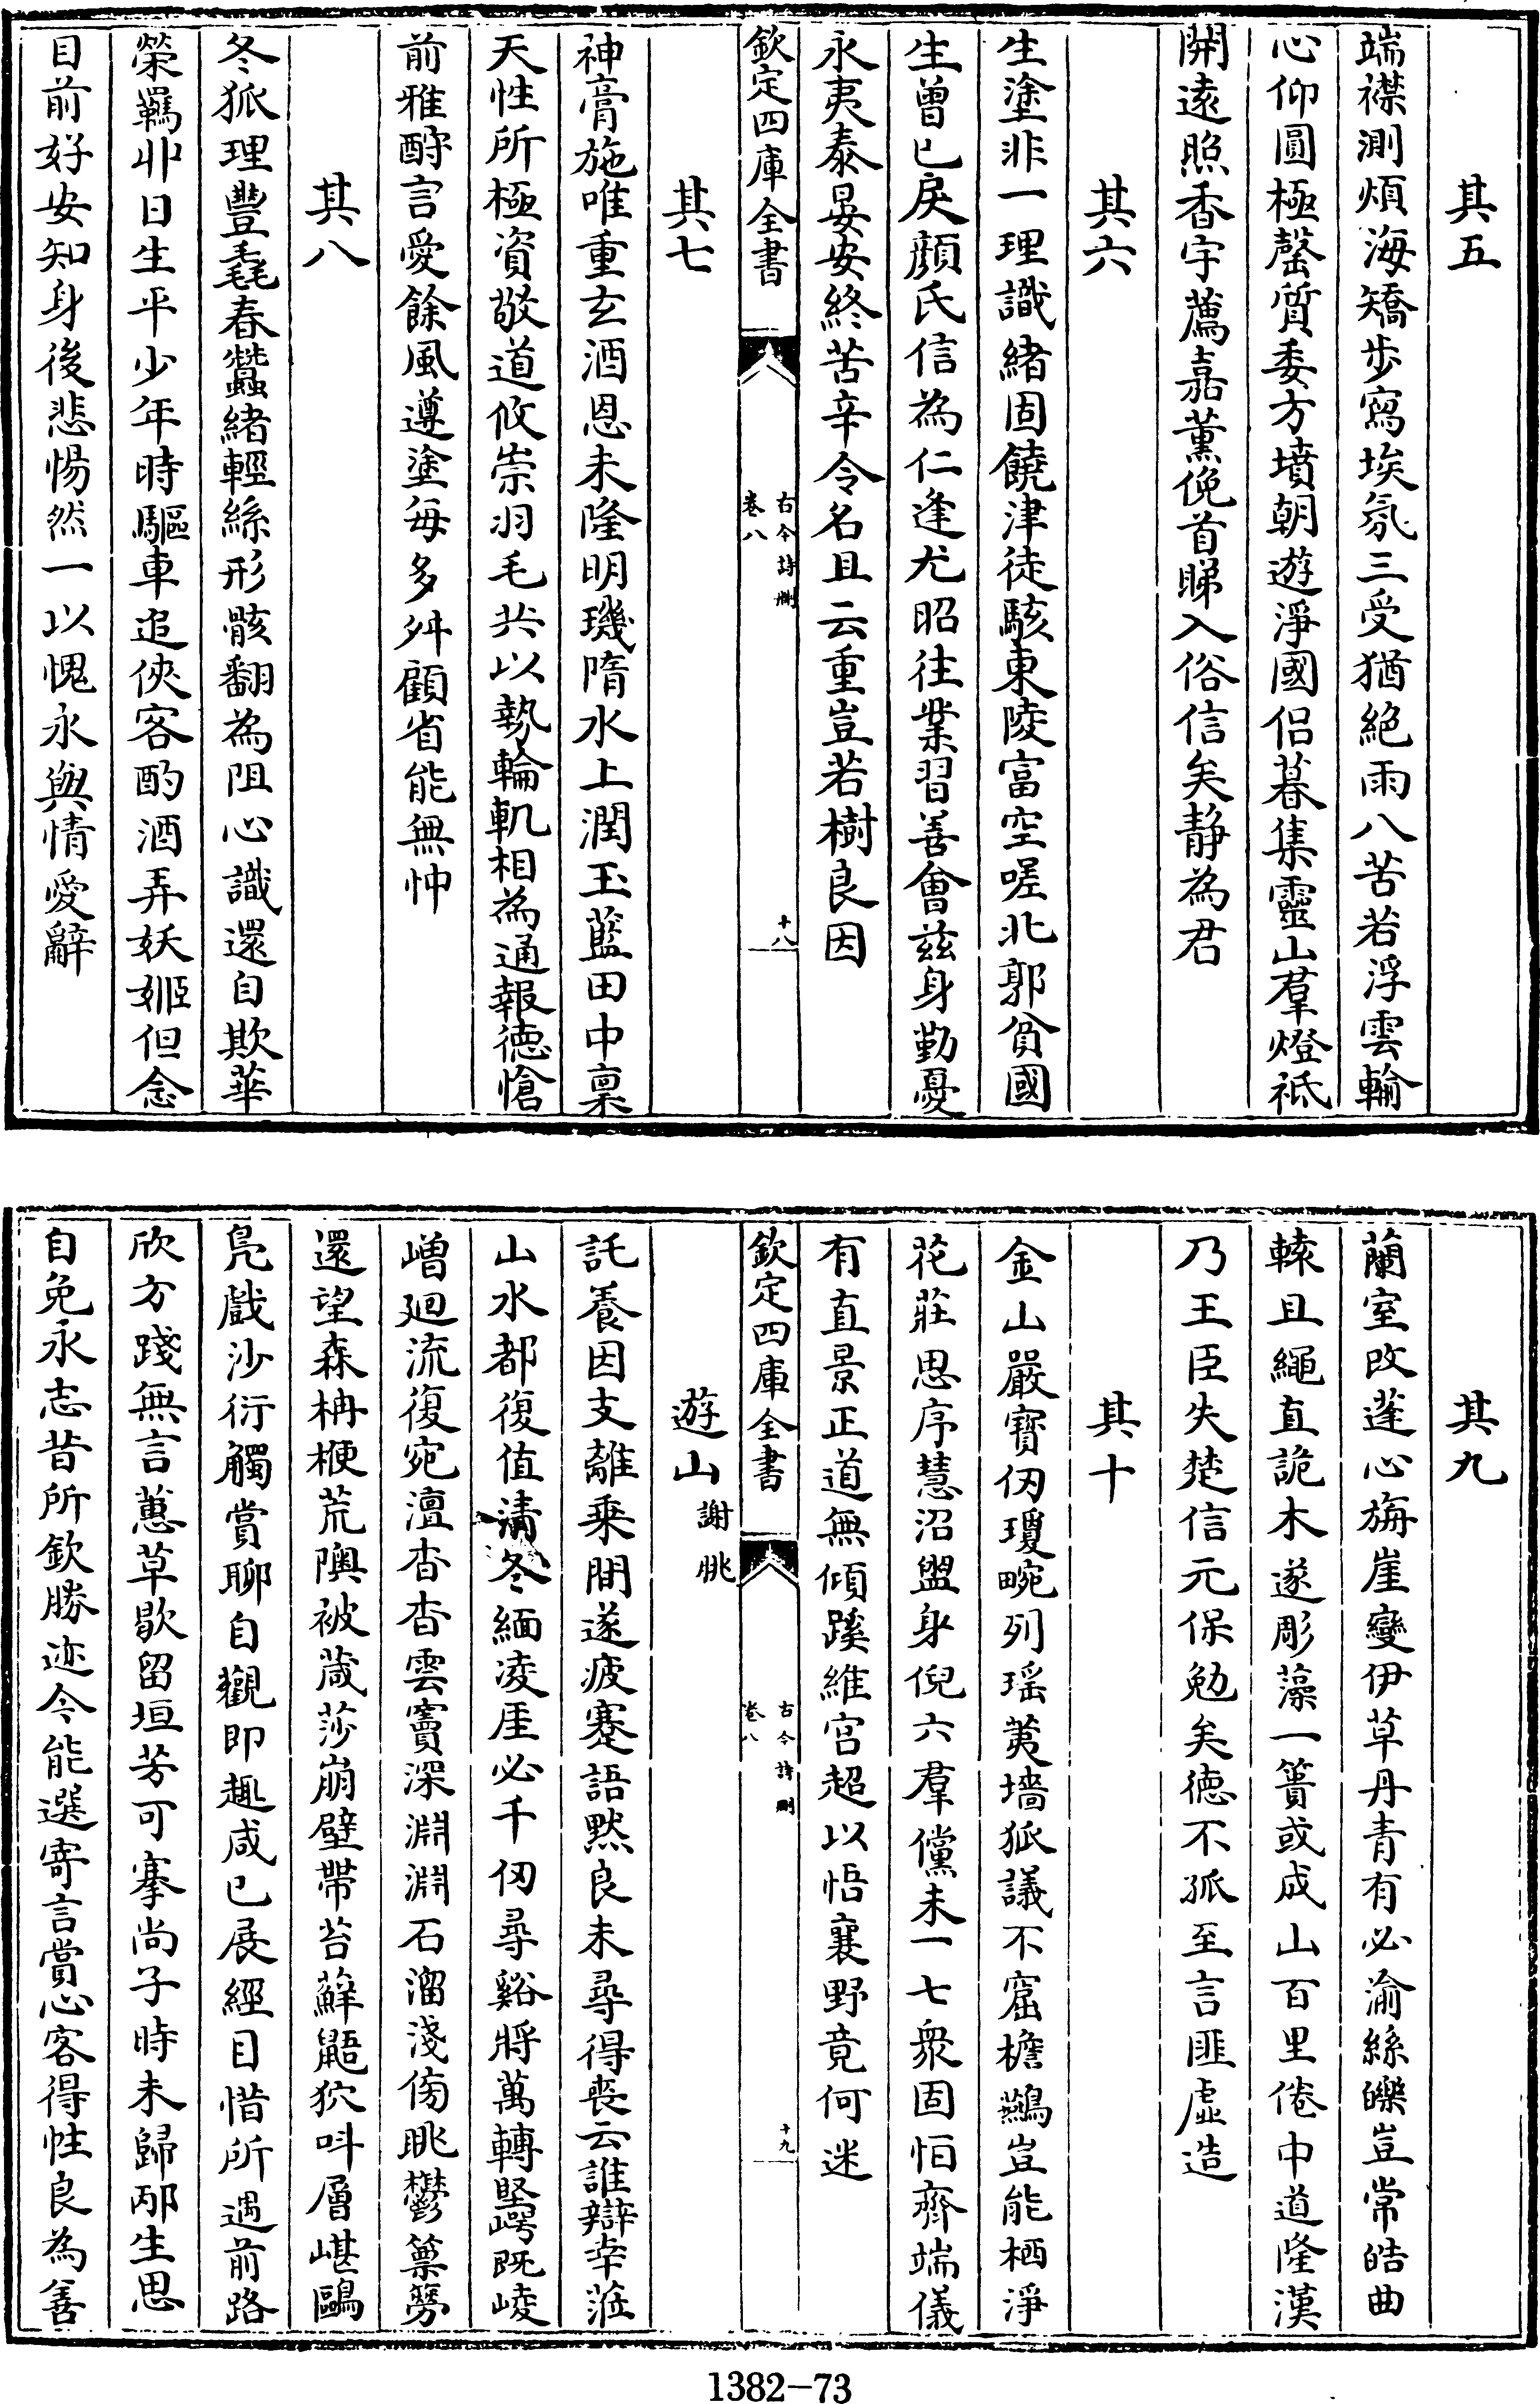 其五
端襟測煩海矯步寫埃氛三受猶絶雨八苦若浮雲輪
心仰圓極罄質委方墳朝遊淨國侣暮集靈山羣燈祗
開遠照香宇薦嘉薰俛首睇入俗信矣静為君
其六
生塗非一理識緒固饒津徒駭東陵富空嗟北郭貧國
生曾已戾顔氏信為仁逢尤昭往業習善會兹身勤憂
永夷泰晏安終苦辛令名且云重豈若樹良因
欽定四庫全書
古今詩刪
卷八
十八
其七
神膏施唯重玄酒恩未隆明璣隋水上潤玉藍田中稟
天性所極資敬道攸崇羽毛共以勢輪軏相為通報德愴
前雅酧言愛餘風遵塗每多舛顧省能無忡
其八
冬狐理豐毳春蠶緒輕絲形骸翻為阻心識還自欺華
榮羈丱日生平少年時驅車追俠客酌酒弄妖姬但念
目前好安知身後悲惕然一以愧永與情愛辭
其九
蘭室改蓬心旃崖變伊草丹青有必渝絲皪豈常皓曲
轅且繩直詭木遂彫藻一簣或成山百里倦中道隆漢
乃王臣失楚信元保勉矣德不孤至言匪虛造
其十
金山嚴寶仞瓊畹列瑶荑墻狐議不窟檐鷰豈能栖淨
花莊思序慧沼盥身倪六羣儻未一七衆固怕齊端儀
有直景正道無傾蹊維宫超以悟襄野竟何迷
欽定四庫全書
古今詩刪
卷八
十九
遊山謝朓
託養因支離乘間遂疲蹇語黙良未尋得喪云誰辯幸涖
山水都復值清冬緬凌厓必千仞尋谿將萬轉堅崿既崚
嶒廻流復宛澶杳杳雲竇深淵淵石溜淺傍眺鬱篻簩
還望森柟楩荒隩被葴莎崩壁帶苔蘚鼯狖叫層嵁鷗
鳬戲沙衍觸賞聊自觀即趣咸已展經目惜所遇前路
欣方踐無言蕙草歇留垣芳可搴尚子時未歸邴生思
自免永志昔所欽勝迹今能選寄言賞心客得性良為善
1382-73